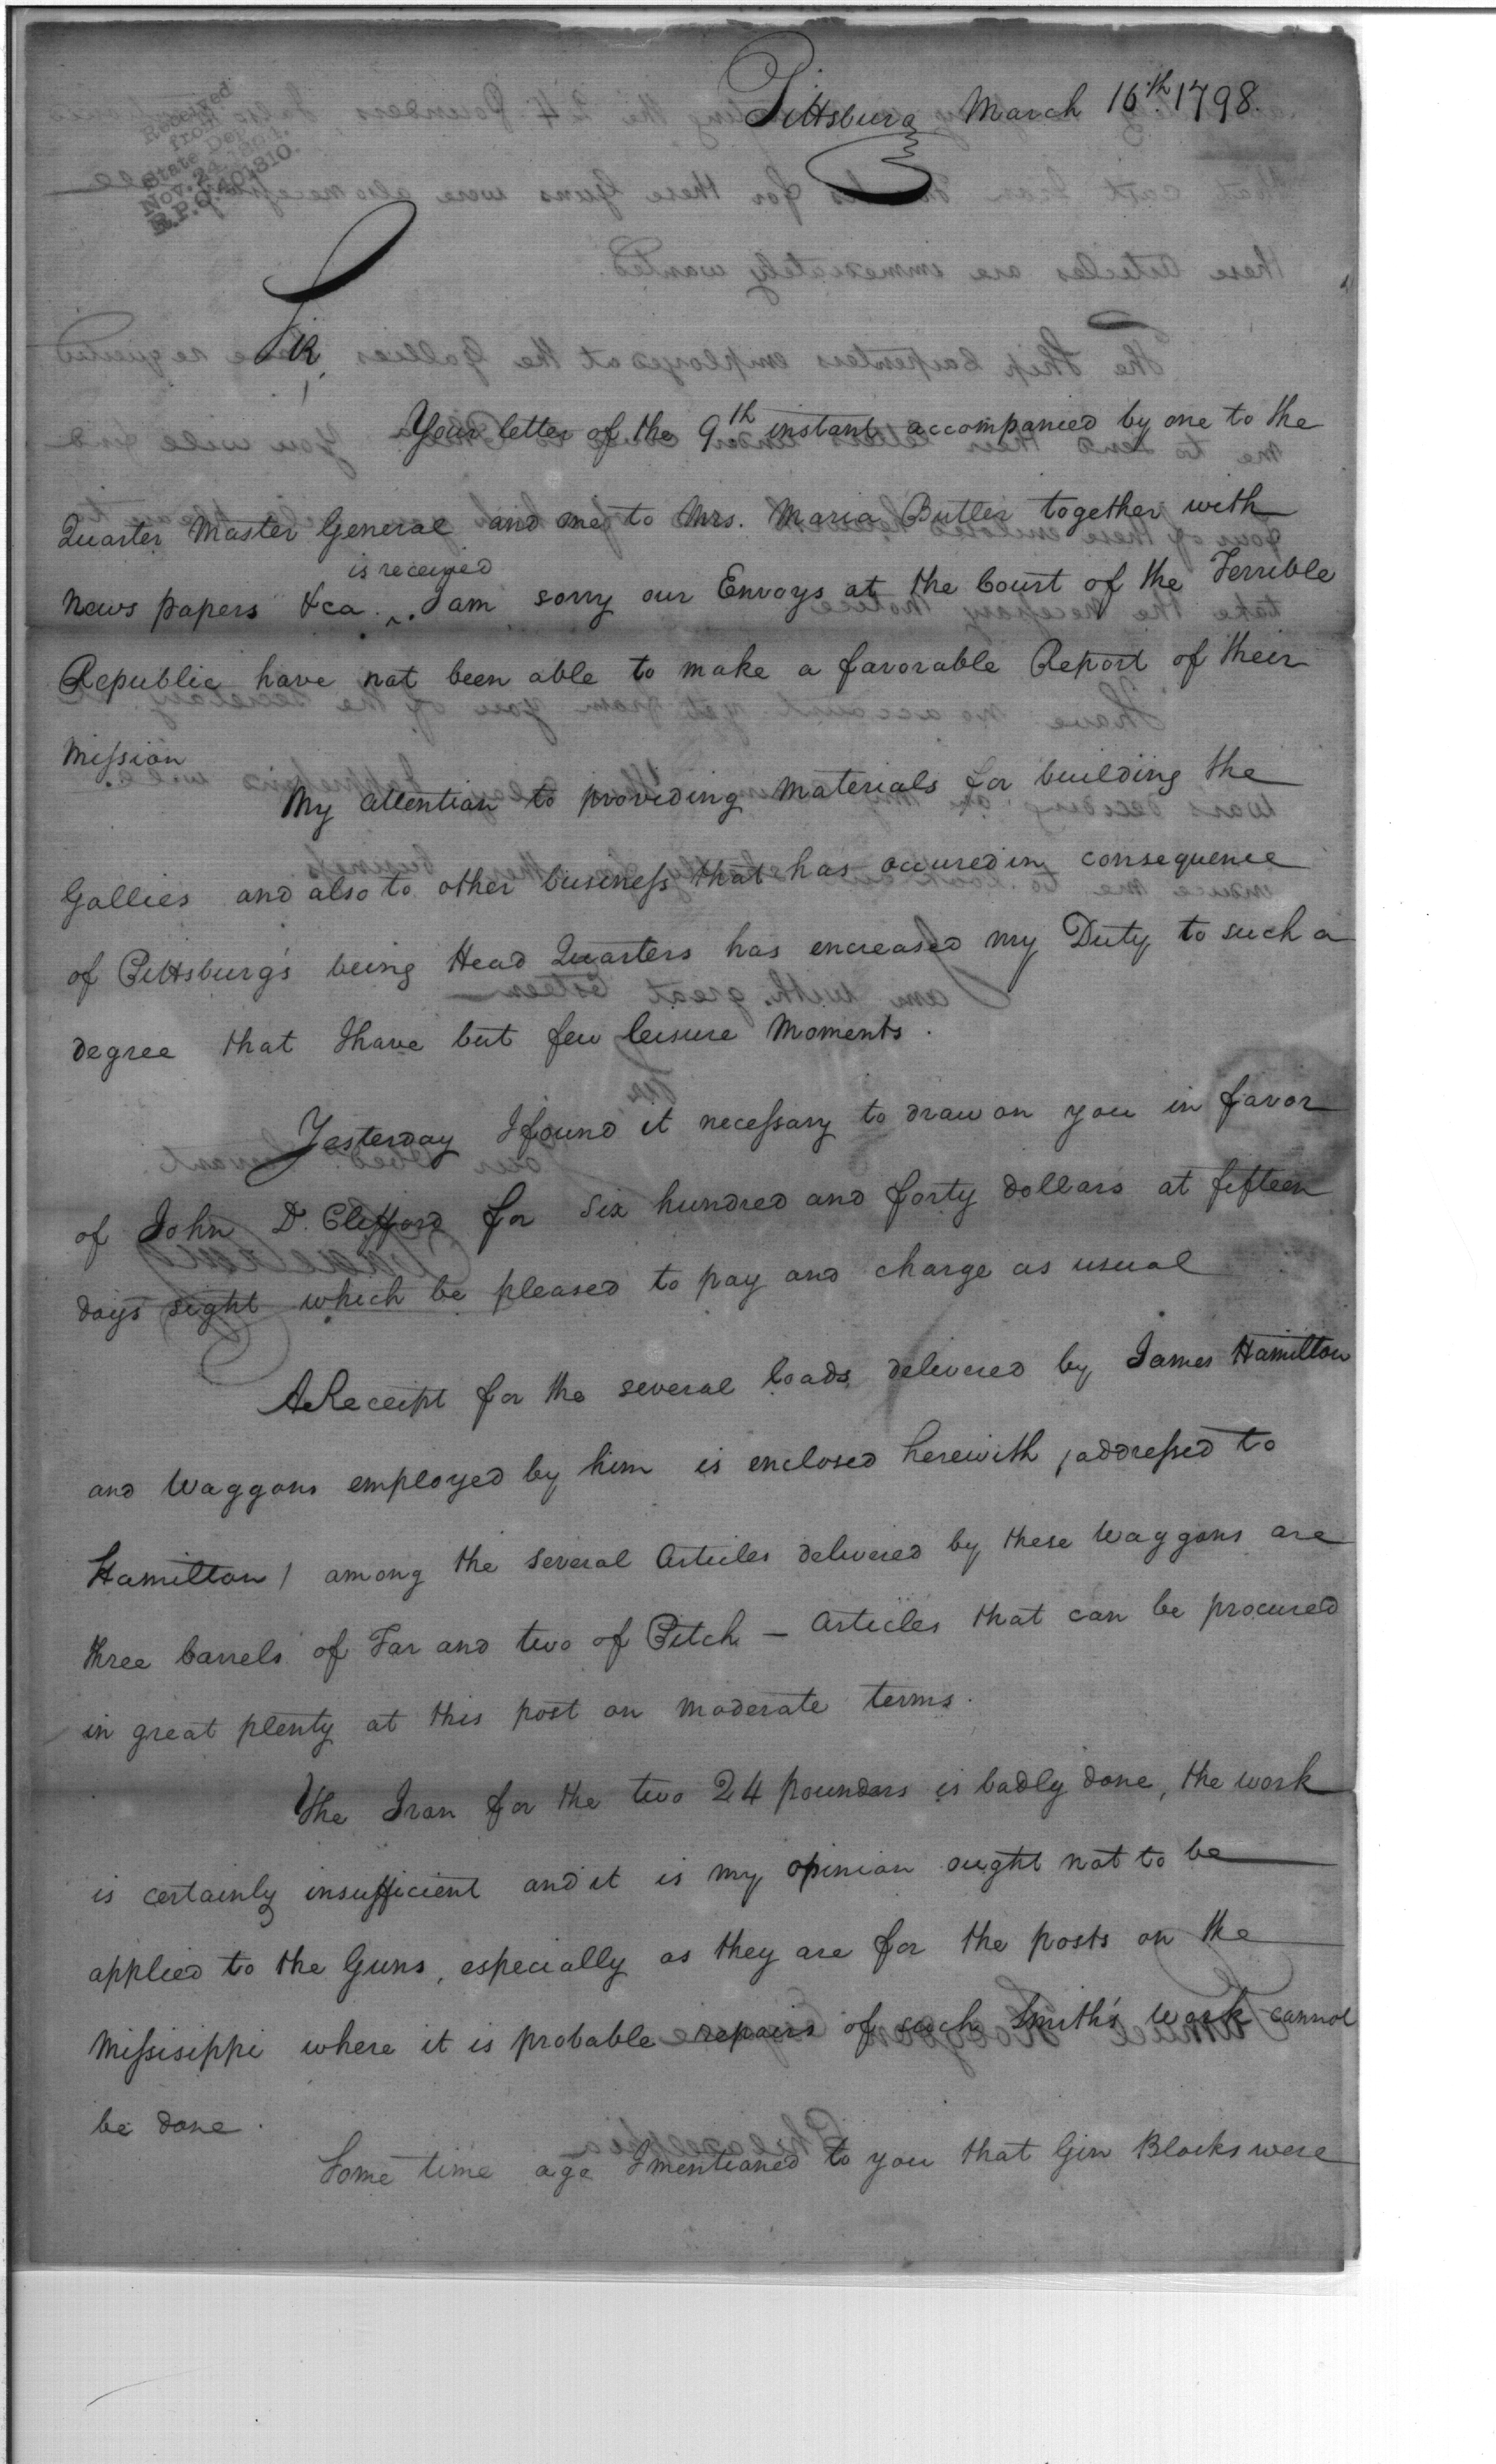 Pittsburg March 16th. 1798.
Received
from
State Dep
Nov. 24
R.P.O. 401,310.
Sir,
Your letter of the 9th instant accompanied by one to the
Quarter Master General and one to Mrs. Maria Butler together with
is received
news papers &ca. ^. I am sorry our Envoys at the Court of the Terrible
Republic have not been able to make a favorable Report of their
Mission
My attention to providing materials for building the
Gallies and also to other business that has occured in consequence
of Pittsburg's being Head Quarters has encreased my Duty to such a
degree that I have but few leisure Moments.
Yesterday I found it necessary to draw on you in favor
of John D. Clifford for six hundred and forty dollars at fifteen
days sight which be pleased to pay and charge as usual
A Receipt for the several loads delivered by James Hamilton
and Waggons employed by him is enclosed herewith, addressed to
Hamilton / among the several Articles delivered by these Waggons are
three barrels of Tar and two of Pitch — Articles that can be procured
in great plenty at this post on moderate terms.
The Iron for the two 24 pounders is badly done, the work
is certainly insufficient and it is my opinion ought not to be
applied to the Guns, especially as they are for the posts on the
Missisippi where it is probable repairs of such Smith's work cannot
be done.
Some time ago I mentioned to you that Gin Blocks were